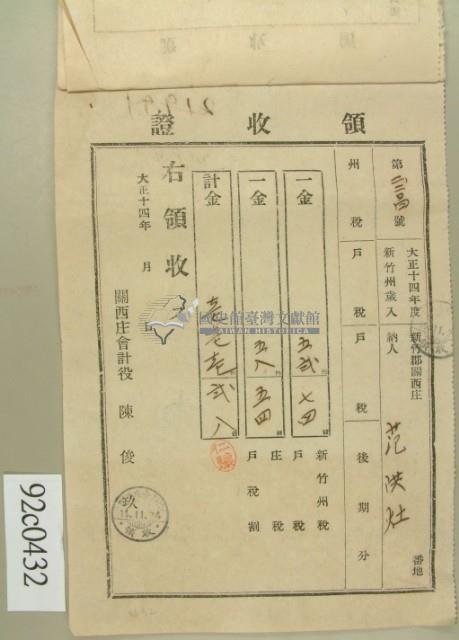 領收證
第 號
大正十四年度 新竹郡關西庄
新竹州歲入 納人 范洪灶 番地
州稅 戶稅 戶稅 後期分
一金 五弐 七四 新竹州稅 戶稅
一金 五八 五四 庄稅 戶稅割
計金 壱 弐八
右領收
大正十四年 月
關西庄會計役 陳俊玖
國史館臺灣文獻館
14.11.24
92c0432